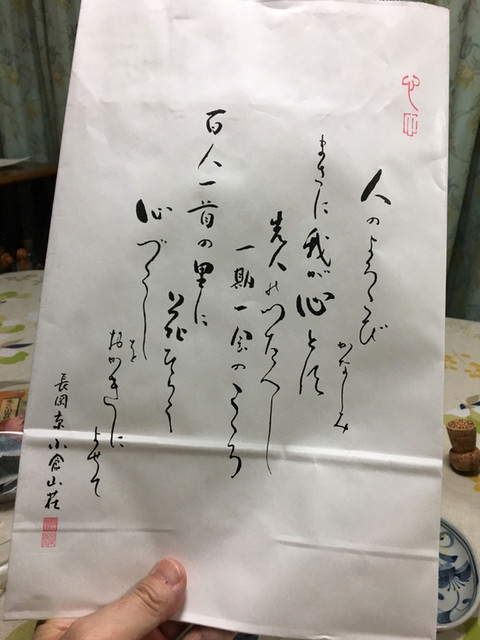 人のよろこび
かなしみ
まさに我が心とす
先人のつたへし
一期一会のこころ
百人一首の里に
花ひらく
心づくし
を
おかきに
よせて
長岡京小倉山荘